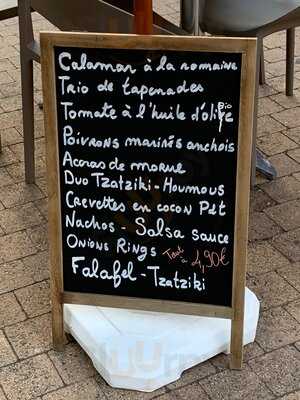 Calamar à la romaine
Trio de tapenades
Tomate à l'huile d'olive Bio
Poivrons marinés anchois
Acras de morue
Duo Tzatziki - Houmous
Crevettes en cocon Pdt
Nachos - Salsa sauce
Onions Rings Tout à 4,90€
Falafel - Tzatziki